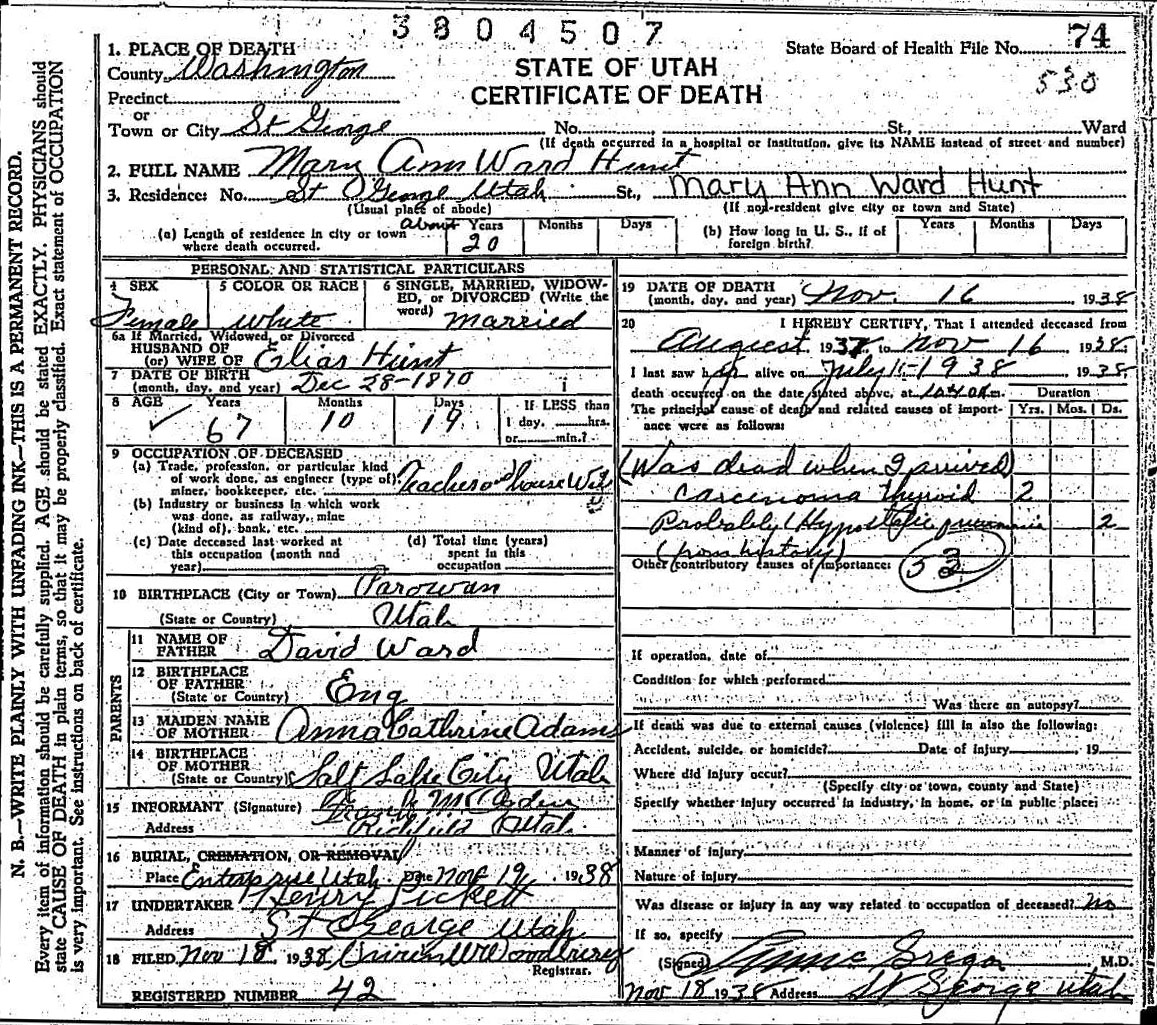 3804507
State Board of Health File No. 74
530
STATE OF UTAH
CERTIFICATE OF DEATH
N. B.—WRITE PLAINLY WITH UNFADING INK—THIS IS A PERMANENT RECORD.
Every item of information should be carefully supplied. AGE should be stated EXACTLY. PHYSICIANS should
state CAUSE OF DEATH in plain terms, so that it may be properly classified. Exact statement of OCCUPATION
is very important. See instructions on back of certificate.
1. PLACE OF DEATH
County Washington
Precinct
or
Town or City St George No. St., Ward
(If death occurred in a hospital or institution, give its NAME instead of street and number)
2. FULL NAME Mary Ann Ward Hunt
3. Residence: No. St George Utah St., Mary Ann Ward Hunt
(Usual place of abode) (If non-resident give city or town and State)
(a) Length of residence in city or town where death occurred. about Years 20 Months Days
(b) How long in U. S., if of foreign birth? Years Months Days
PERSONAL AND STATISTICAL PARTICULARS
4 SEX Female
5 COLOR OR RACE white
6 SINGLE, MARRIED, WIDOWED, or DIVORCED (Write the word) Married
6a If Married, Widowed, or Divorced
HUSBAND OF
(or) WIFE OF Elias Hunt
7 DATE OF BIRTH
(month, day, and year) Dec 28-1870
8 AGE Years 67 Months 10 Days 19 If LESS than 1 day, hrs. or min.?
9 OCCUPATION OF DECEASED
(a) Trade, profession, or particular kind
of work done, as engineer (type of)
miner, bookkeeper, etc. Teacher and house Wife
(b) Industry or business in which work
was done, as railway, mine
(kind of), bank, etc.
(c) Date deceased last worked at
this occupation (month and
year)
(d) Total time (years)
spent in this
occupation
10 BIRTHPLACE (City or Town) Parowan
(State or Country) Utah
PARENTS
11 NAME OF
FATHER David Ward
12 BIRTHPLACE
OF FATHER
(State or Country) Eng
13 MAIDEN NAME
OF MOTHER Anna Cathrine Adams
14 BIRTHPLACE
OF MOTHER
(State or Country) Salt Lake City Utah
15 INFORMANT (Signature)
Address Richfield Utah
16 BURIAL, CREMATION, OR REMOVAL
Place Enterprise Utah Date Nov 19, 1938
17 UNDERTAKER Henry Pickett
Address St George Utah
18 FILED Nov 18, 1938
Registrar.
REGISTERED NUMBER 42
19 DATE OF DEATH
(month, day, and year) Nov. 16 1938
20 I HEREBY CERTIFY, That I attended deceased from
August 1937 to Nov 16 1938
I last saw her alive on July 1938 1938
death occurred on the date stated above, at m.
The principal cause of death and related causes of importance were as follows:
Duration
Yrs. Mos. Ds.
(Was dead when I arrived)
Carcenoma Thyroid 2
Probably Hypostatic pneumonia 2
(from history)
Other contributory causes of importance: 53
If operation, date of
Condition for which performed
Was there an autopsy?
If death was due to external causes (violence) fill in also the following:
Accident, suicide, or homicide? Date of injury , 19
Where did injury occur?
(Specify city or town, county and State)
Specify whether injury occurred in industry, in home, or in public place:
Manner of injury
Nature of injury
Was disease or injury in any way related to occupation of deceased? no
If so, specify
(Signed) M.D.
Nov 18 1938 Address St George Utah